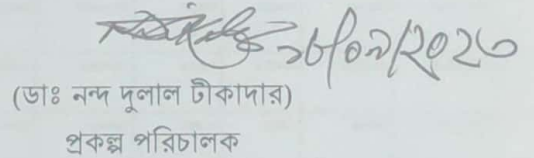 ১৮/০৯/২০২৩
(ডাঃ নন্দ দুলাল টীকাদার)
প্রকল্প পরিচালক